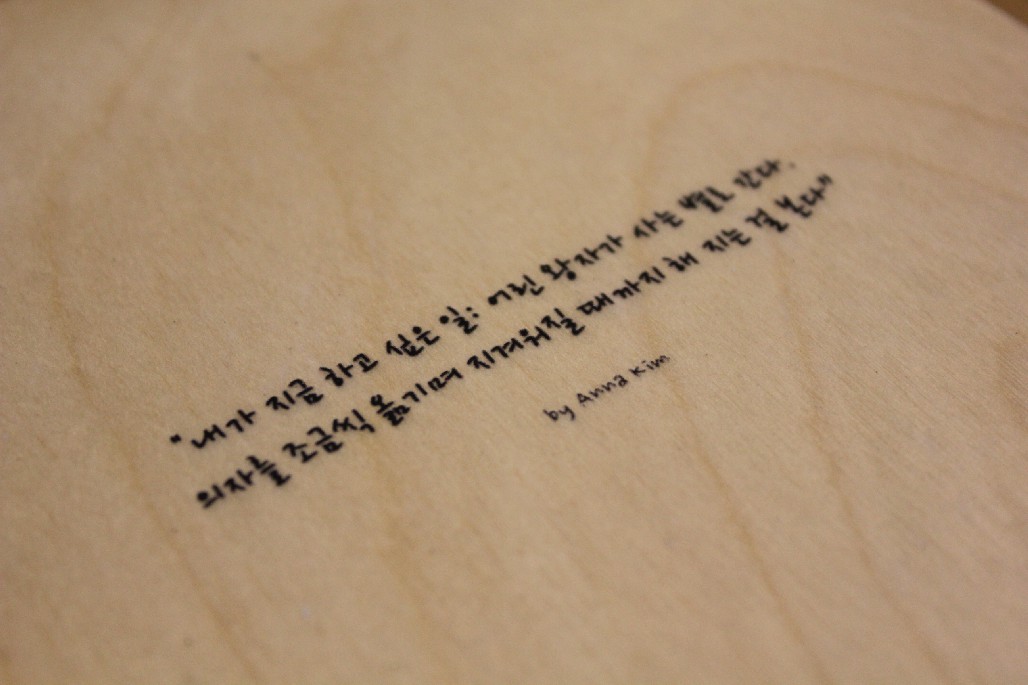 "내가 지금 하고 싶은 일: 어린 왕자가 사는 별로 간다.
의자를 조금씩 옮기며 지겨워질 때까지 해 지는 걸 본다"
by Anna Kim